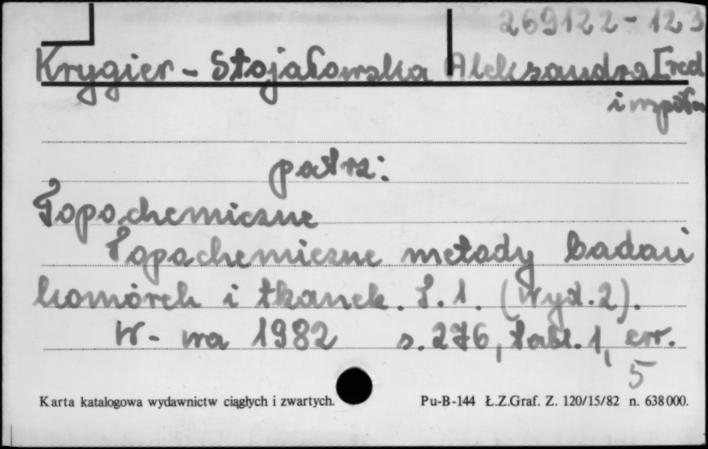 269122-123
Krygier-Stojałowska Aleksandra [red.
i współ.
patrz:
Topochemiczne
Topochemiczne metody badań
komórek i tkanek. T.1. (Wyd.2).
W-wa 1982 s.276, tabl.1, err.
5
Karta katalogowa wydawnictw ciągłych i zwartych. Pu-B-144 Ł.Z.Graf. Z. 120/15/82 n. 638000.